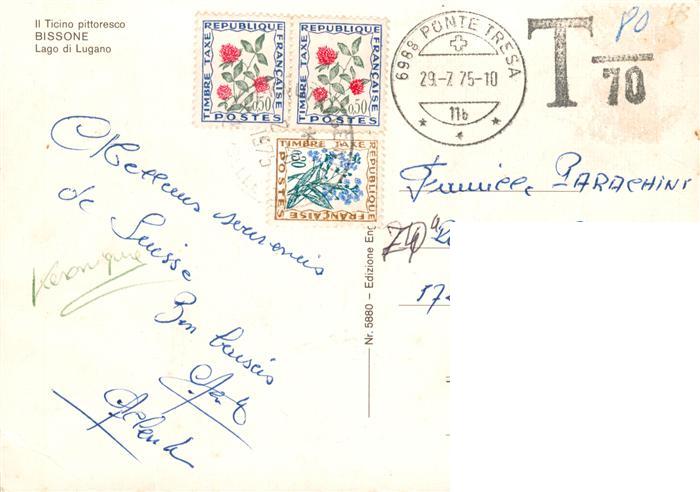 Il Ticino pittoresco
BISSONE
Lago di Lugano
REPUBLIQUE FRANÇAISE
TIMBRE TAXE
0,50
POSTES
REPUBLIQUE FRANÇAISE
TIMBRE TAXE
0,50
POSTES
TIMBRE TAXE
REPUBLIQUE FRANÇAISE
0,30
POSTES
6988 PONTE TRESA
29.-7.75-10
11b
T
80
70
Famille PARACHINI
Meilleurs souvenirs
de Suisse
Bon baisers
Véronique
Nr. 5880 – Edizione Eng